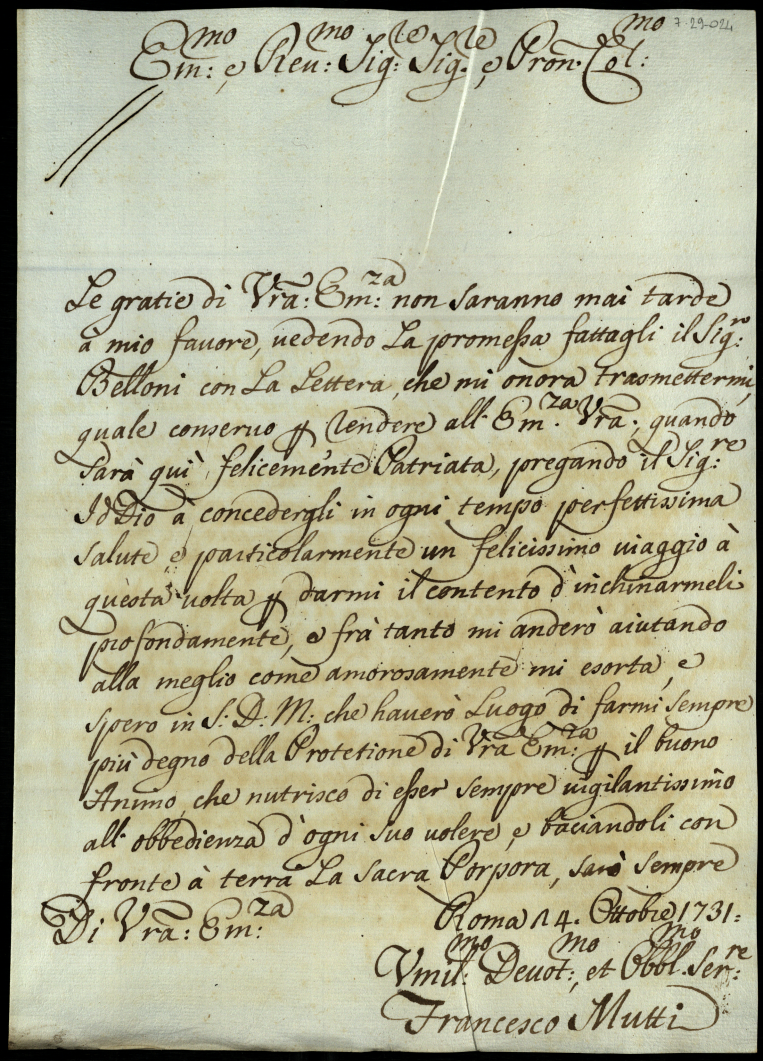 7-29-024
Em:mo e Reu:mo Sig:re Sig:re e Pron. Col:mo
Le gratie di Vra: Em:za non saranno mai tarde
à mio fauore, uedendo La promessa fattagli il Sig:re
Belloni con La Lettera, che mi onora trasmettermi,
quale conseruo p rendere all' Em:za Vra:, quando
sarà quì felicemente Patriata, pregando il Sig:re
Id Dio à concedergli in ogni tempo perfettissima
salute, e particolarmente un felicissimo uiaggio à
questa uolta p darmi il contento d'inchinarmeli
profondamente, e frà tanto mi anderò aiutando
alla meglio come amorosamente mi esorta, e
spero in S: D: M: che hauerò Luogo di farmi sempre
più degno della Protetione di Vra Em:za p il buono
Animo, che nutrisco di esser sempre uigilantissimo
all' obbedienza d'ogni suo uolere, e baciandoli con
fronte à terra La sacra Porpora, sarò sempre
Di Vra: Em:za
Roma 14. Ottobre 1731:
Vmil:mo Deuot:mo, et Obbl:mo Ser:re
Francesco Mutti